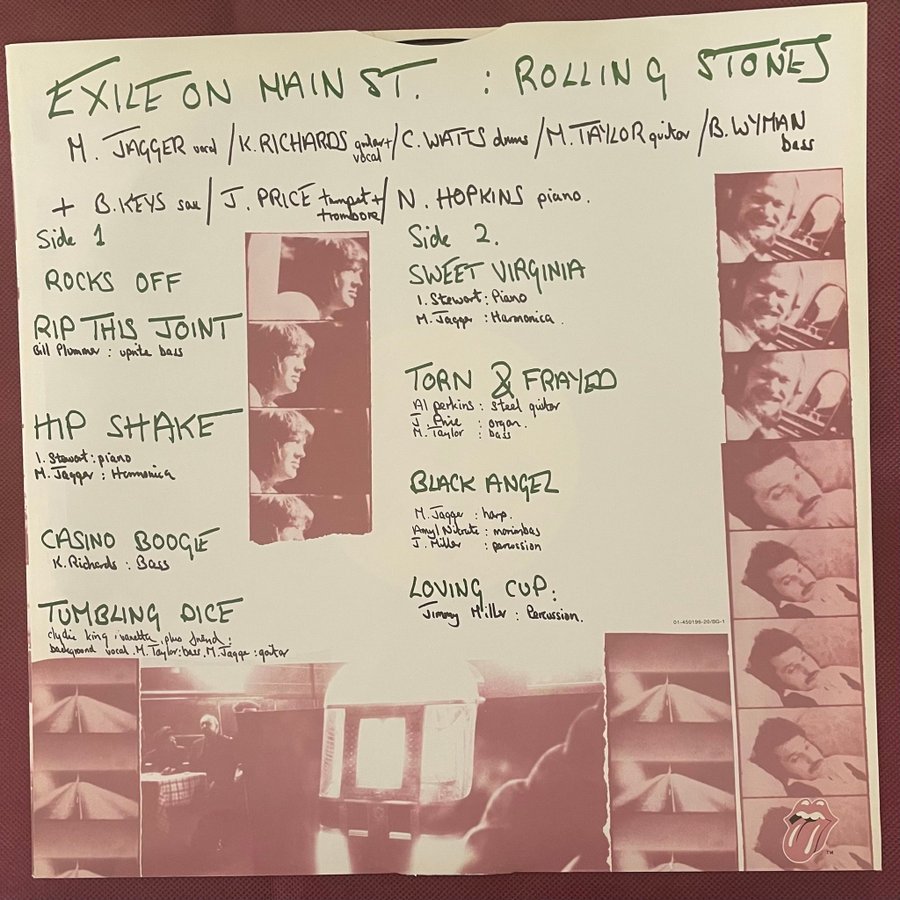 EXILE ON MAIN ST. : ROLLING STONES
M. JAGGER vocal / K. RICHARDS guitar + vocal / C. WATTS drums / M. TAYLOR guitar / B. WYMAN bass
+ B. KEYS sax / J. PRICE trumpet + trombone / N. HOPKINS piano.
Side 1
ROCKS OFF
RIP THIS JOINT
Bill Plummer : uprite bass
HIP SHAKE
I. Stewart : piano
M. Jagger : Harmonica
CASINO BOOGIE
K. Richards : Bass
TUMBLING DICE
clydie king, vanetta, plus friend :
background vocal. M. Taylor : bass. M. Jagger : guitar
Side 2.
SWEET VIRGINIA
I. Stewart : Piano
M. Jagger : Harmonica.
TORN & FRAYED
Al perkins : steel guitar
J. Price : organ.
M. Taylor : bass
BLACK ANGEL
M. Jagger : harp.
Amyl Nitrate : marimbas
J. Miller : percussion
LOVING CUP :
Jimmy Miller : Percussion.
01-450196-20/BG-1
TM